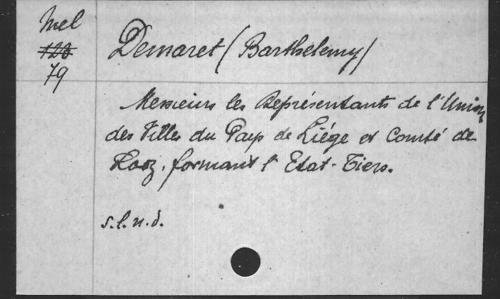 Mel
123
79
Demaret (Barthelemy)
Messieurs les Représentants de l'Union
des Villes du Pays de Liége et Comté de
Looz, formant l'Etat-Tiers.
s.l.n.d.